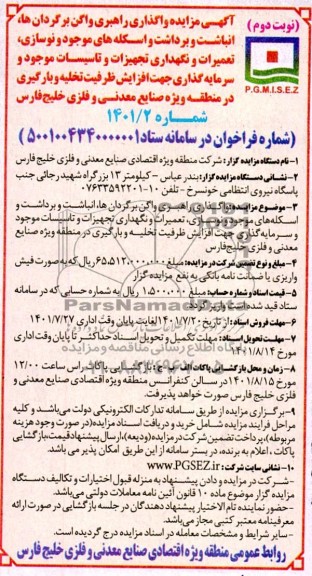 (نوبت دوم)
P.G.M.I.S.E.Z
آگهی مزایده واگذاری راهبری واگن برگردان ها،
انباشت و برداشت و اسکله های موجود و نوسازی،
تعمیرات و نگهداری تجهیزات و تاسیسات موجود و
سرمایه گذاری جهت افزایش ظرفیت تخلیه و بارگیری
در منطقه ویژه صنایع معدنی و فلزی خلیج فارس
شماره ۱۴۰۱/۲
(شماره فراخوان در سامانه ستاد ۵۰۰۱۰۰۴۳۴۰۰۰۰۰۰۱)
۱- نام دستگاه مزایده گزار: شرکت منطقه ویژه اقتصادی صنایع معدنی و فلزی خلیج فارس
۲- نشانی دستگاه مزایده گزار: بندرعباس - کیلومتر ۱۳ بزرگراه شهید رجائی جنب
پاسگاه نیروی انتظامی خونسرخ - تلفن ۱۰-۰۷۶۳۳۵۹۲۲۰۱
۳- موضوع مزایده: واگذاری راهبری واگن برگردان ها، انباشت و برداشت و
اسکله های موجود و نوسازی، تعمیرات و نگهداری تجهیزات و تاسیسات موجود
و سرمایه گذاری جهت افزایش ظرفیت تخلیه و بارگیری در منطقه ویژه صنایع
معدنی و فلزی خلیج فارس
۴- مبلغ و نوع تضمین شرکت در مزایده: مبلغ ۶۵،۵۱۲،۰۰۰،۰۰۰ ریال که به صورت فیش
واریزی یا ضمانت نامه بانکی به نفع مزایده گزار
۵- قیمت اسناد و شماره حساب: مبلغ ۱،۵۰۰،۰۰۰ ریال به شماره حسابی که در سامانه
ستاد قید شده است واریز گردد.
۶- مهلت فروش اسناد: از تاریخ ۱۴۰۱/۷/۲۰ لغایت پایان وقت اداری ۱۴۰۱/۷/۲۷
۷- مهلت تحویل اسناد: مهلت تکمیل و تحویل اسناد حداکثر تا پایان وقت اداری
مورخ ۱۴۰۱/۸/۱۴
۸- زمان و محل بازگشایی پاکات الف- ب- ج: بازگشایی پاکات راس ساعت ۱۲/۰۰
مورخ ۱۴۰۱/۸/۱۵ در سالن کنفرانس منطقه ویژه اقتصادی صنایع معدنی و
فلزی خلیج فارس صورت خواهد پذیرفت.
۹- برگزاری مزایده از طریق سامانه تدارکات الکترونیکی دولت می باشد و کلیه
مراحل فرایند مزایده شامل خرید و دریافت اسناد مزایده (در صورت وجود هزینه
مربوطه)، پرداخت تضمین شرکت در مزایده (ودیعه)، ارسال پیشنهاد قیمت، بازگشایی
پاکات، اعلام به برنده، در بستر سامانه از این طریق امکان پذیر می باشد.
۱۰- نشانی سایت شرکت: www.PGSEZ.ir
- شرکت در مزایده و دادن پیشنهاد به منزله قبول اختیارات و تکالیف دستگاه
مزایده گزار موضوع ماده ۱۰ قانون آئین نامه معاملات دولتی می باشد.
- حضور نماینده تام الاختیار پیشنهاد دهندگان در جلسه بازگشایی در صورت ارائه
معرفینامه معتبر کتبی مجاز می باشد.
- سایر شرایط و مشخصات معامله در اسناد مزایده درج گردیده است.
روابط عمومی منطقه ویژه اقتصادی صنایع معدنی و فلزی خلیج فارس
ParsNamadData